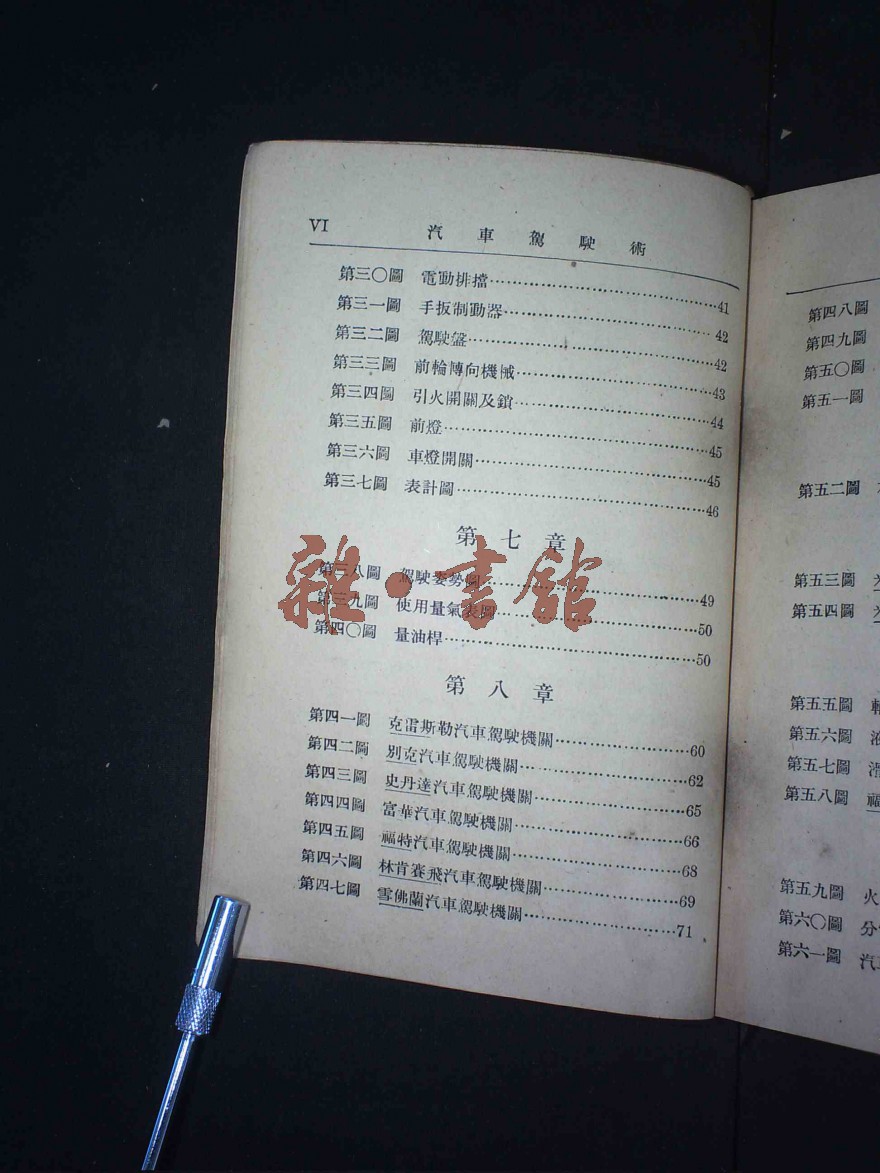 VI 汽車駕駛術
第三〇圖 電動排擋……41
第三一圖 手扳制動器……42
第三二圖 駕駛盤……42
第三三圖 前輪轉向機械……43
第三四圖 引火開關及鎖……44
第三五圖 前燈……45
第三六圖 車燈開關……45
第三七圖 表計圖……46
第七章
第三八圖 駕駛姿勢圖……49
第三九圖 使用量氣表圖……50
第四〇圖 量油桿……50
雜·書館
第八章
第四一圖 克雷斯勒汽車駕駛機關……60
第四二圖 別克汽車駕駛機關……62
第四三圖 史丹達汽車駕駛機關……65
第四四圖 富華汽車駕駛機關……66
第四五圖 福特汽車駕駛機關……68
第四六圖 林肯賽飛汽車駕駛機關……69
第四七圖 雪佛蘭汽車駕駛機關……71
第四八圖
第四九圖
第五〇圖
第五一圖
第五二圖
第五三圖
第五四圖
第五五圖
第五六圖
第五七圖
第五八圖
第五九圖 火
第六〇圖 分
第六一圖 汽車